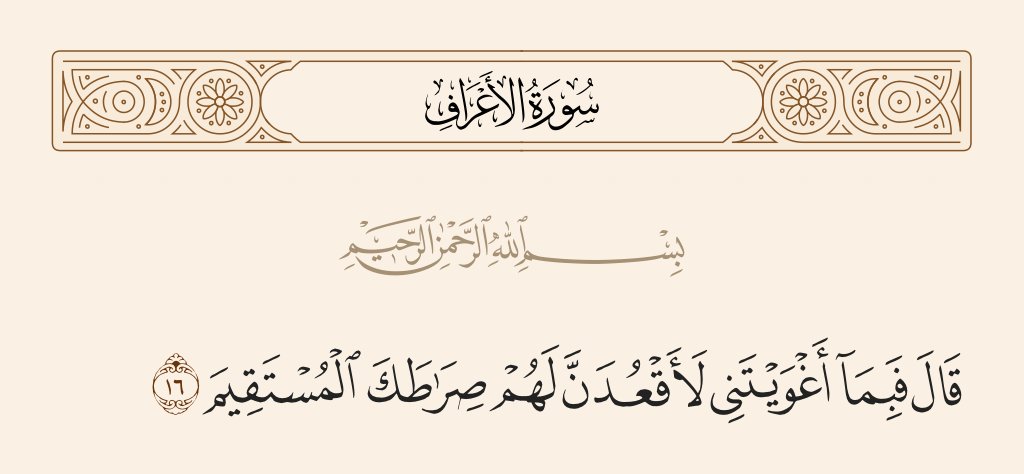 سُورَةُ الأَعْرَافِ
بِسْمِ ٱللَّهِ ٱلرَّحْمَٰنِ ٱلرَّحِيمِ
قَالَ فَبِمَآ أَغْوَيْتَنِى لَأَقْعُدَنَّ لَهُمْ صِرَٰطَكَ ٱلْمُسْتَقِيمَ ١٦